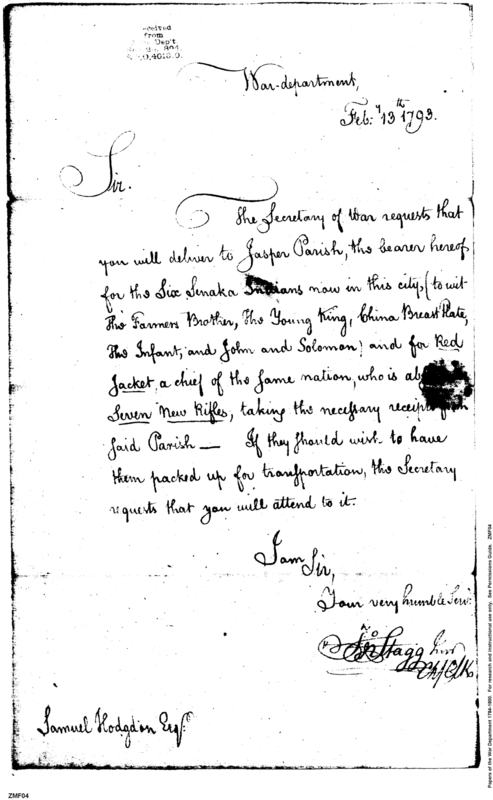 eceived
from
Dep't.
War-department,
Feb: y 13th 1793.
Sir.
The Secretary of War requests that
you will deliver to Jasper Parish, the bearer hereof,
for the Six Senaka Indians now in this city, (to wit
The Farmers Brother, The Young King, China Breast Plate,
The Infant, and John and Solomon) and for Red
Jacket, a chief of the same nation, who is ab
Seven New Rifles, taking the necessary receipts from
said Parish — If they should wish to have
them packed up for transportation, the Secretary
requests that you will attend to it.
I am Sir,
Your very humble Serv:
Jno Stagg Junr
Ch: Clk
Samuel Hodgdon Esqr.
ZMF04
Papers of the War Department 1784-1800. For research and instructional use only. See Permissions Guide. ZMF04